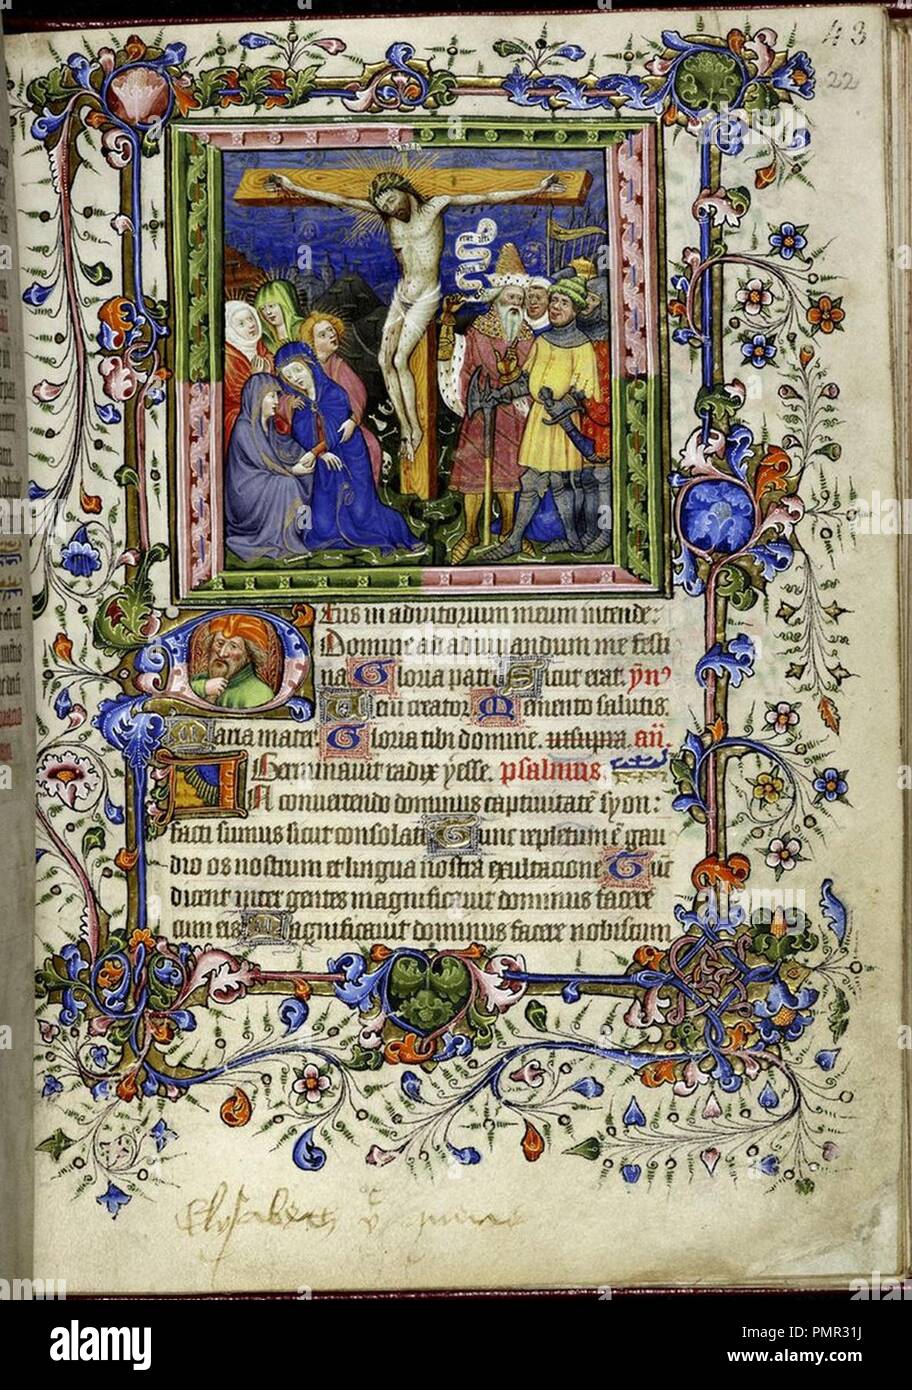 43
22
Deus in adiutorium meum intende:
Domine ad adiuuandum me festi
na Gloria patri Sicut erat. yn⁹
Ueni creator. Memento salutis.
Maria mater. Gloria tibi domine. ut supra. añ.
Germinauit radix yesse. psalmus.
IN conuertendo dominus captiuitatē syon:
facti sumus sicut consolati Tunc repletum ē gau
dio os nostrum et lingua nostra exultacione Tūc
dicent inter gentes magnificauit dominus facere
cum eis Magnificauit dominus facere nobiscum
Elysabeth
alamy
Image ID: PMR31J
www.alamy.com